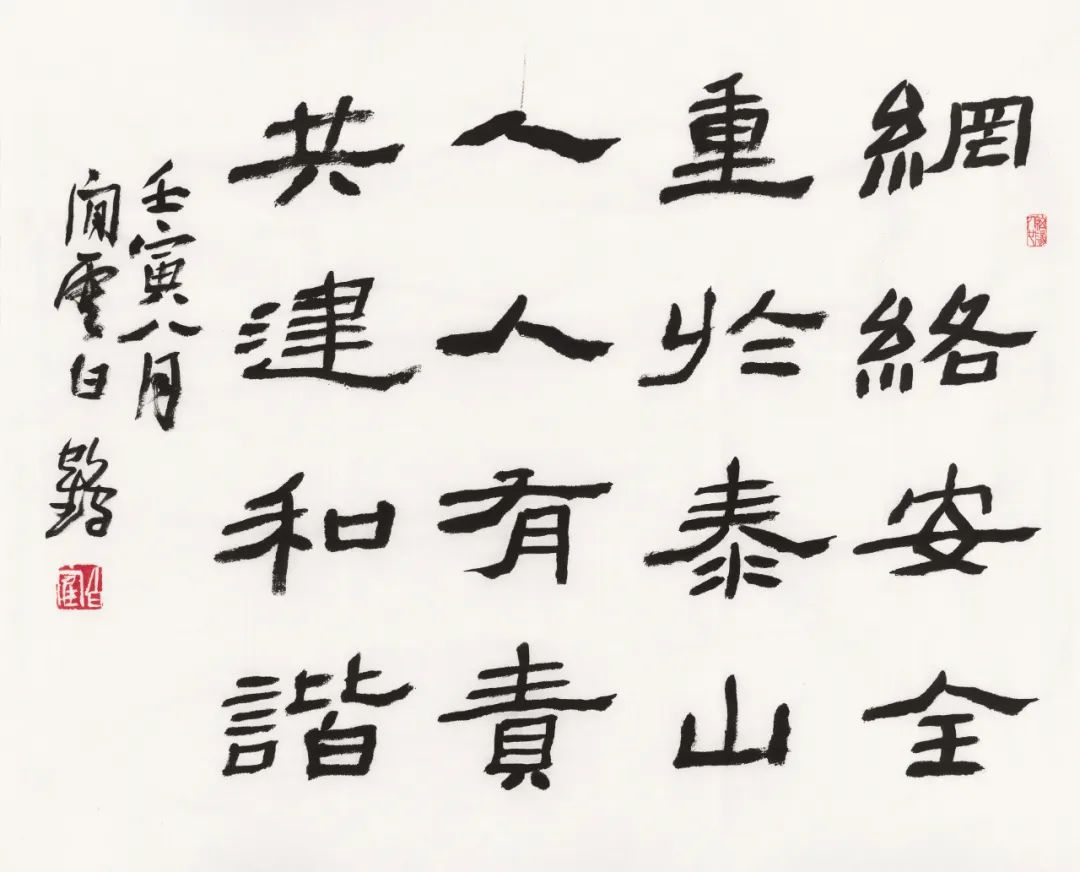 網絡安全
重於泰山
人人有責
共建和諧
壬寅八月
閒雲白鶴